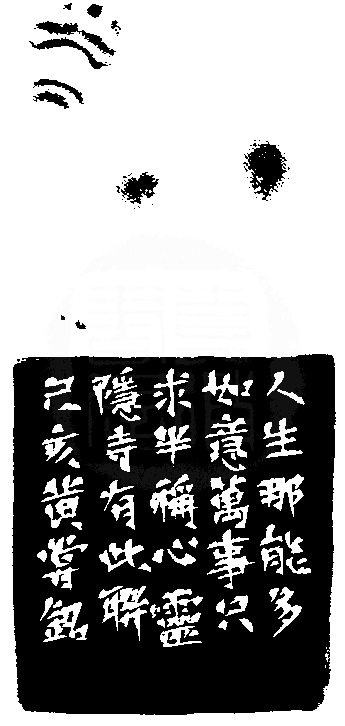 人生那能多
如意萬事只
求半稱心靈
隱寺有此聯
己亥黃嘗銘